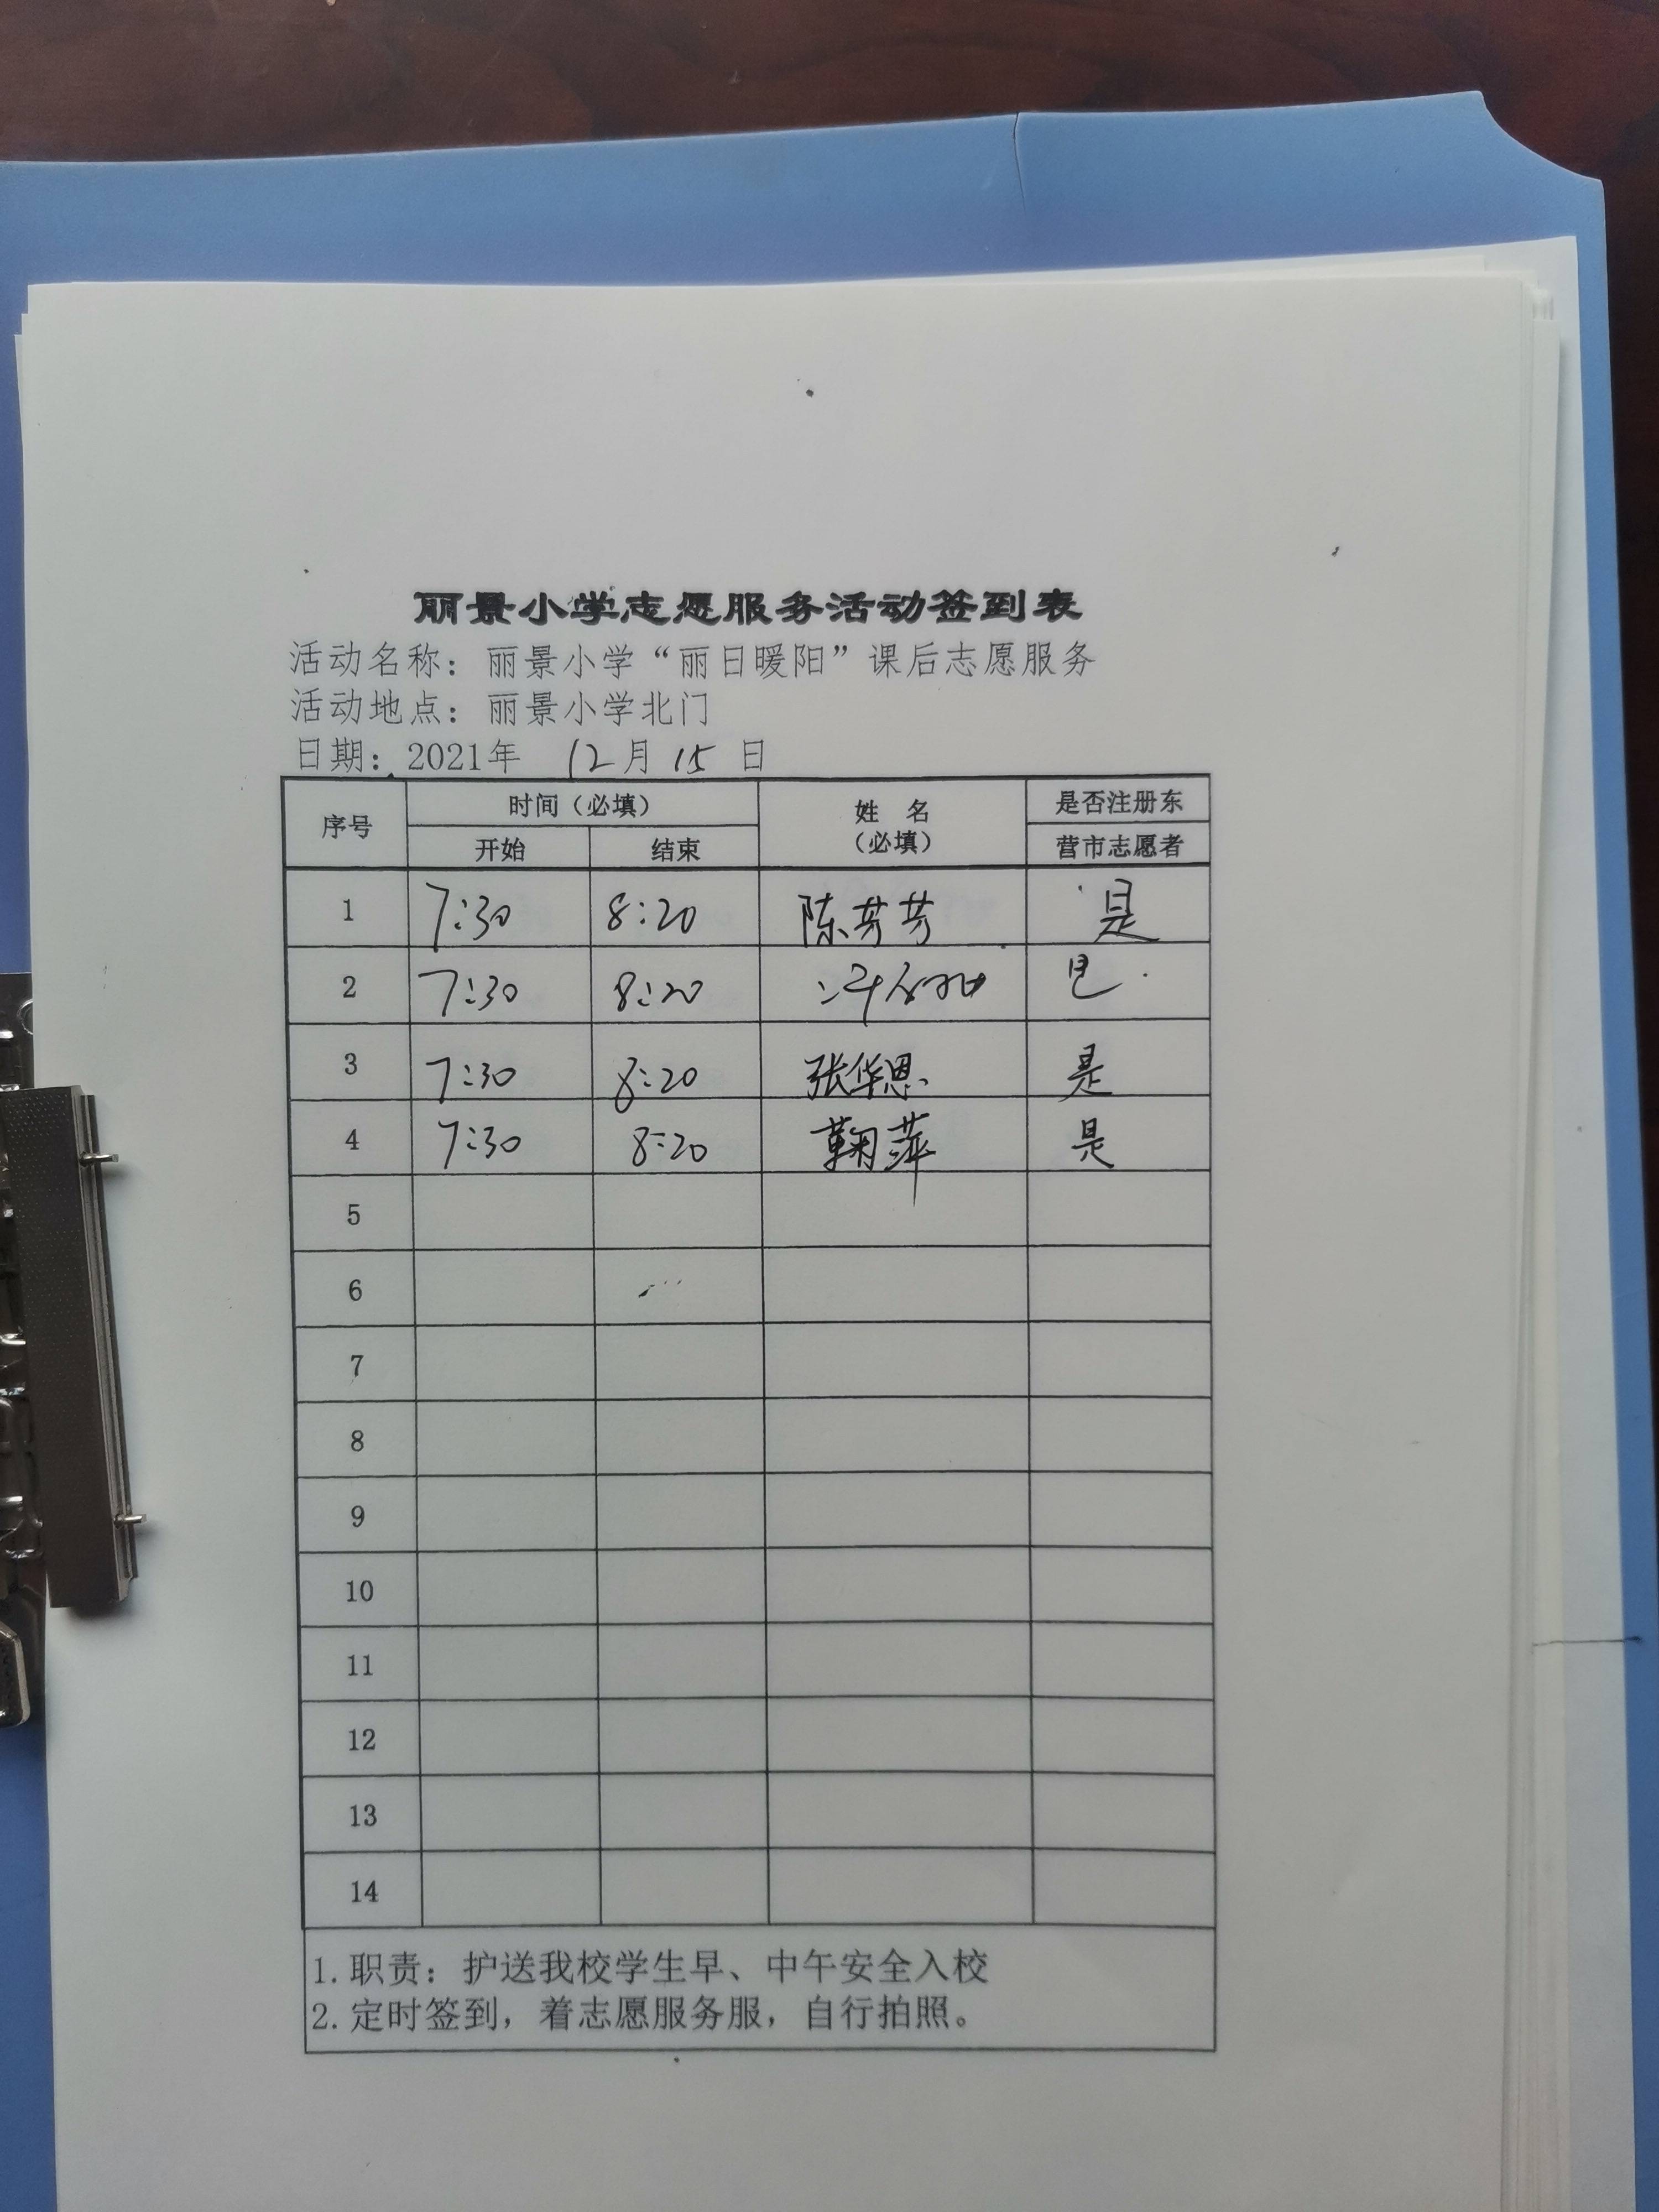 丽景小学志愿服务活动签到表
活动名称：丽景小学“丽日暖阳”课后志愿服务
活动地点：丽景小学北门
日期：2021年 12月 15 日
序号 时间（必填） 姓 名（必填） 是否注册东营市志愿者
开始 结束
1 7:30 8:20 陈芳芳 是
2 7:30 8:20 是
3 7:30 8:20 张华恩 是
4 7:30 8:20 鞠萍 是
5
6
7
8
9
10
11
12
13
14
1.职责：护送我校学生早、中午安全入校
2.定时签到，着志愿服务服，自行拍照。